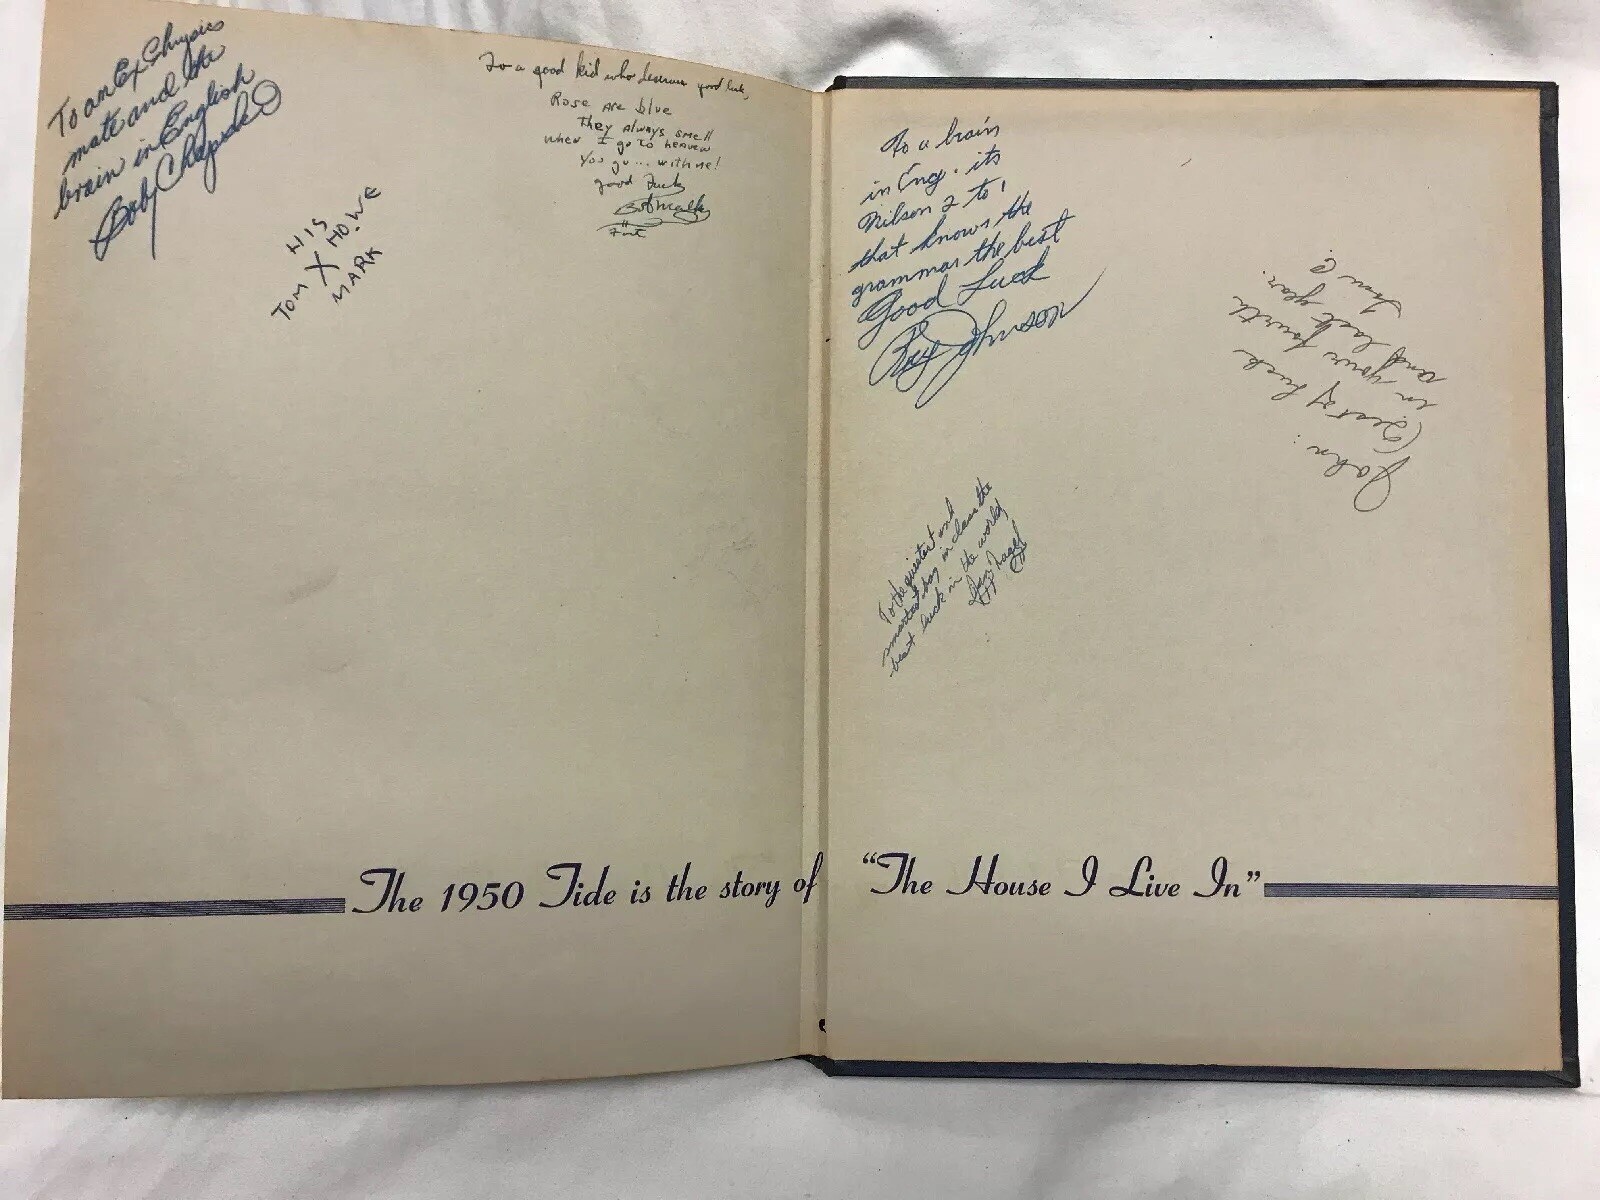 To an Ex Chysics
mate and the
brain in English
Boby
To a good kid who deserves good luck,
Rose are blue
They always smell
when I go to heaven
You go... with me!
good luck
HIS
TOM X HOWE
MARK
To a brain
in Eng. its
Nilson 2 to 1
that knows the
grammar the best
Good Luck
Ray Johnson
John:
Best of luck
in your fourth
and last year.
To the quietest and
smartest boy in class the
best luck in the world
The 1950 Tide is the story of "The House I Live In"